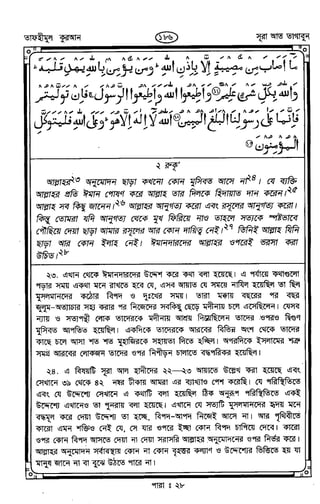 তাফহীমুল কুরআন
১৮৬
সূরা আত তাগাবুন
مَا أَصَابَ مِنْ مُصِيبَةٍ إِلَّا بِإِذْنِ اللَّهِ وَمَنْ يُؤْمِنْ بِاللَّهِ يَهْدِ قَلْبَهُ
وَاللَّهُ بِكُلِّ شَيْءٍ عَلِيمٌ ⑪ وَأَطِيعُوا اللَّهَ وَأَطِيعُوا الرَّسُولَ فَإِنْ تَوَلَّيْتُمْ
فَإِنَّمَا عَلَى رَسُولِنَا الْبَلَاغُ الْمُبِينُ ⑫ اللَّهُ لَا إِلَهَ إِلَّا هُوَ وَعَلَى اللَّهِ فَلْيَتَوَكَّلِ
الْمُؤْمِنُونَ ⑬
২ রুকূ'
আল্লাহর২৩ অনুমোদন ছাড়া কখনো কোন মুসিবত আসে না২৪। যে ব্যক্তি
আল্লাহর প্রতি ঈমান পোষণ করে আল্লাহ তার দিলকে হিদায়াত দান করেন।২৫
আল্লাহ সব কিছু জানেন।২৬ আল্লাহর আনুগত্য করো এবং রসূলের আনুগত্য করো।
কিন্তু তোমরা যদি আনুগত্য থেকে মুখ ফিরিয়ে নাও তাহলে সত্যকে স্পষ্টভাবে
পৌছিয়ে দেয়া ছাড়া আমার রসূলের আর কোন দায়িত্ব নেই।২৭ তিনিই আল্লাহ যিনি
ছাড়া আর কোন ইলাহ নেই। ঈমানদারদের আল্লাহর ওপরেই ভরসা করা
উচিত।২৮
২৩. এখান থেকে ঈমানদারদের উদ্দেশ করে কথা বলা হয়েছে। এ পর্যায়ে কথাগুলো
পড়ার সময় একথা মনে রাখতে হবে যে, এসব আয়াত যে সময়ে নাযিল হয়েছিল তা ছিল
মুসলমানদের কঠোর বিপদ ও দুঃখের সময়। তারা মক্কায় বছরের পর বছর
জুলুম-অত্যাচার সহ্য করার পর নিজেদের সবকিছু ছেড়ে মদীনায় চলে এসেছিলেন। যেসব
ন্যায় ও সত্যপন্থী লোক তাদেরকে মদীনায় আশ্রয় দিয়েছিলেন তাদের ওপরও দ্বিগুণ
মুসিবত আপতিত হয়েছিল। একদিকে তাদেরকে আরবের বিভিন্ন অংশ থেকে তাদের
কাছে চলে আসা শত শত মুহাজিরকে সহায়তা দিতে হচ্ছিল। অপরদিকে ইসলামের শত্রু
সমগ্র আরবের লোকজন তাদের ওপর নিপীড়ন চালাতে বদ্ধপরিকর হয়েছিল।
২৪. এ বিষয়টি সূরা আল হাদীদের ২২—২৩ আয়াতে উল্লেখ করা হয়েছে এবং
সেখানে ৩৯ থেকে ৪২ নম্বর টীকায় আমরা এর ব্যাখ্যাও পেশ করেছি। যে পরিস্থিতিতে
এবং যে উদ্দেশ্যে সেখানে এ কথাটি বলা হয়েছিল ঠিক অনুরূপ পরিস্থিতিতে একই
উদ্দেশ্যে এখানেও তা পুনরায় বলা হয়েছে। এখানে যে সত্যটি মুসলমানদের হৃদয় মনে
বদ্ধমূল করে দেয়া উদ্দেশ্য তা হচ্ছে, বিপদ-আপদ নিজেই আসে না। আর পৃথিবীতে
কারো এমন শক্তিও নেই যে, সে যার ওপরে ইচ্ছা কোন বিপদ চাপিয়ে দেবে। কারো
ওপর কোন বিপদ আসতে দেয়া না দেয়া সরাসরি আল্লাহর অনুমোদনের ওপর নির্ভর করে।
আল্লাহর অনুমোদন সর্বাবস্থায় কোন না কোন বৃহত্তর কল্যাণ ও উদ্দেশ্যের ভিত্তিতে হয় যা
মানুষ জানে না বা বুঝে উঠতে পারে না।
পারা : ২৮